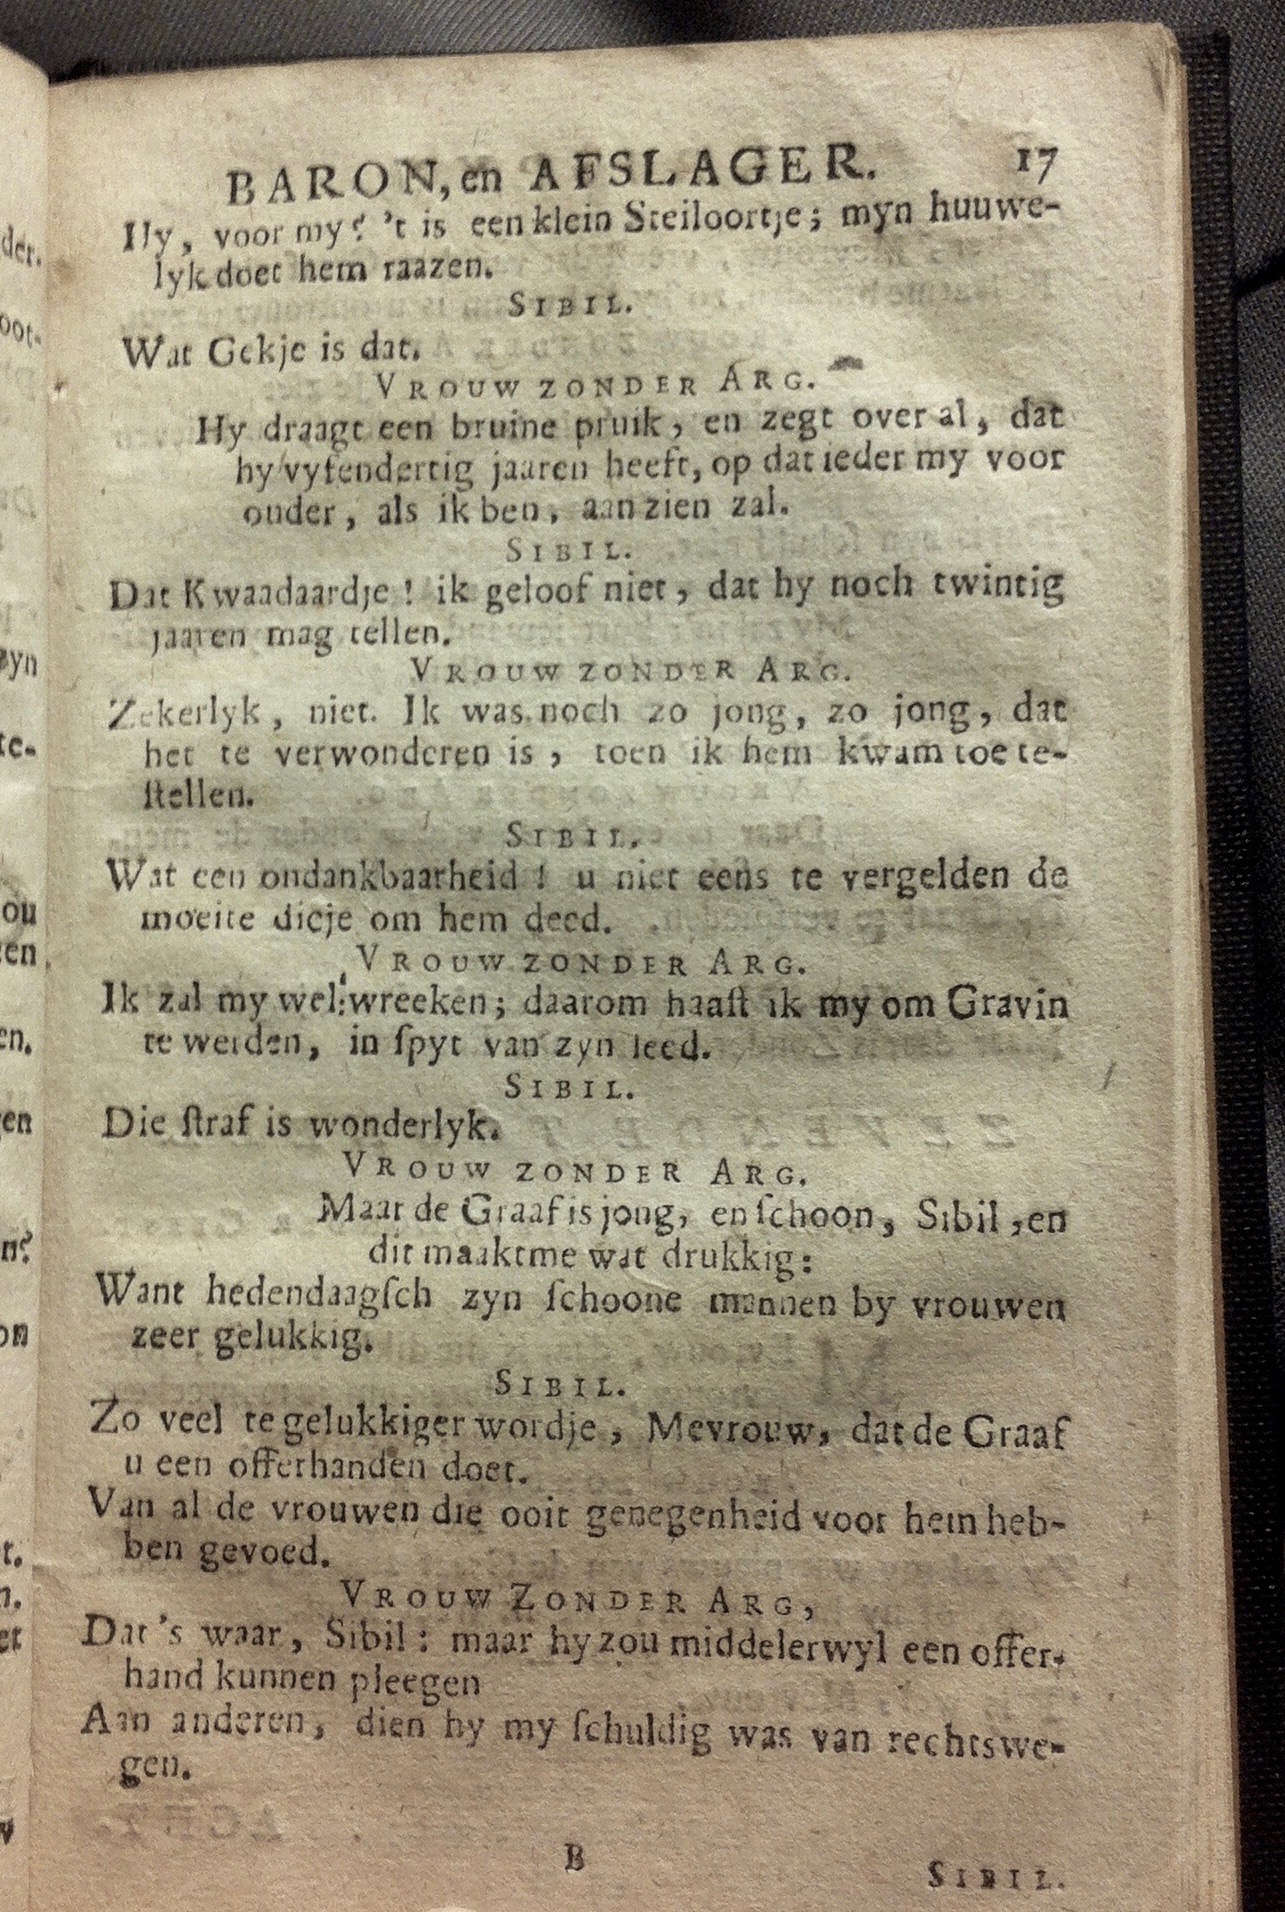 BARON, en AFSLAGER. 17
Hy, voor my? 't is een klein Steiloortje; myn huuwe-
lyk doet hem raazen.
SIBIL.
Wat Gekje is dat.
VROUW ZONDER ARG.
Hy draagt een bruine pruik, en zegt over al, dat
hy vyfendertig jaaren heeft, op dat ieder my voor
ouder, als ik ben, aanzien zal.
SIBIL.
Dat Kwaadaardje! ik geloof niet, dat hy noch twintig
jaaren mag tellen.
VROUW ZONDER ARG.
Zekerlyk, niet. Ik was noch zo jong, zo jong, dat
het te verwonderen is, toen ik hem kwam toe te-
ſtellen.
SIBIL.
Wat een ondankbaarheid! u niet eens te vergelden de
moeite dieje om hem deed.
VROUW ZONDER ARG.
Ik zal my wel wreeken; daarom haaſt ik my om Gravin
te werden, in ſpyt van zyn leed.
SIBIL.
Die ſtraf is wonderlyk.
VROUW ZONDER ARG.
Maar de Graaf is jong, en ſchoon, Sibil, en
dit maaktme wat drukkig:
Want hedendaagſch zyn ſchoone mannen by vrouwen
zeer gelukkig.
SIBIL.
Zo veel te gelukkiger wordje, Mevrouw, dat de Graaf
u een offerhanden doet.
Van al de vrouwen die ooit genegenheid voor hem heb-
ben gevoed.
VROUW ZONDER ARG,
Dat's waar, Sibil: maar hy zou middelerwyl een offer-
hand kunnen pleegen
Aan anderen, dien hy my ſchuldig was van rechtswe-
gen.
B
SIBIL.
der.
oot-
zyn
te-
ou
en.
en
n?
on
t.
n.
et